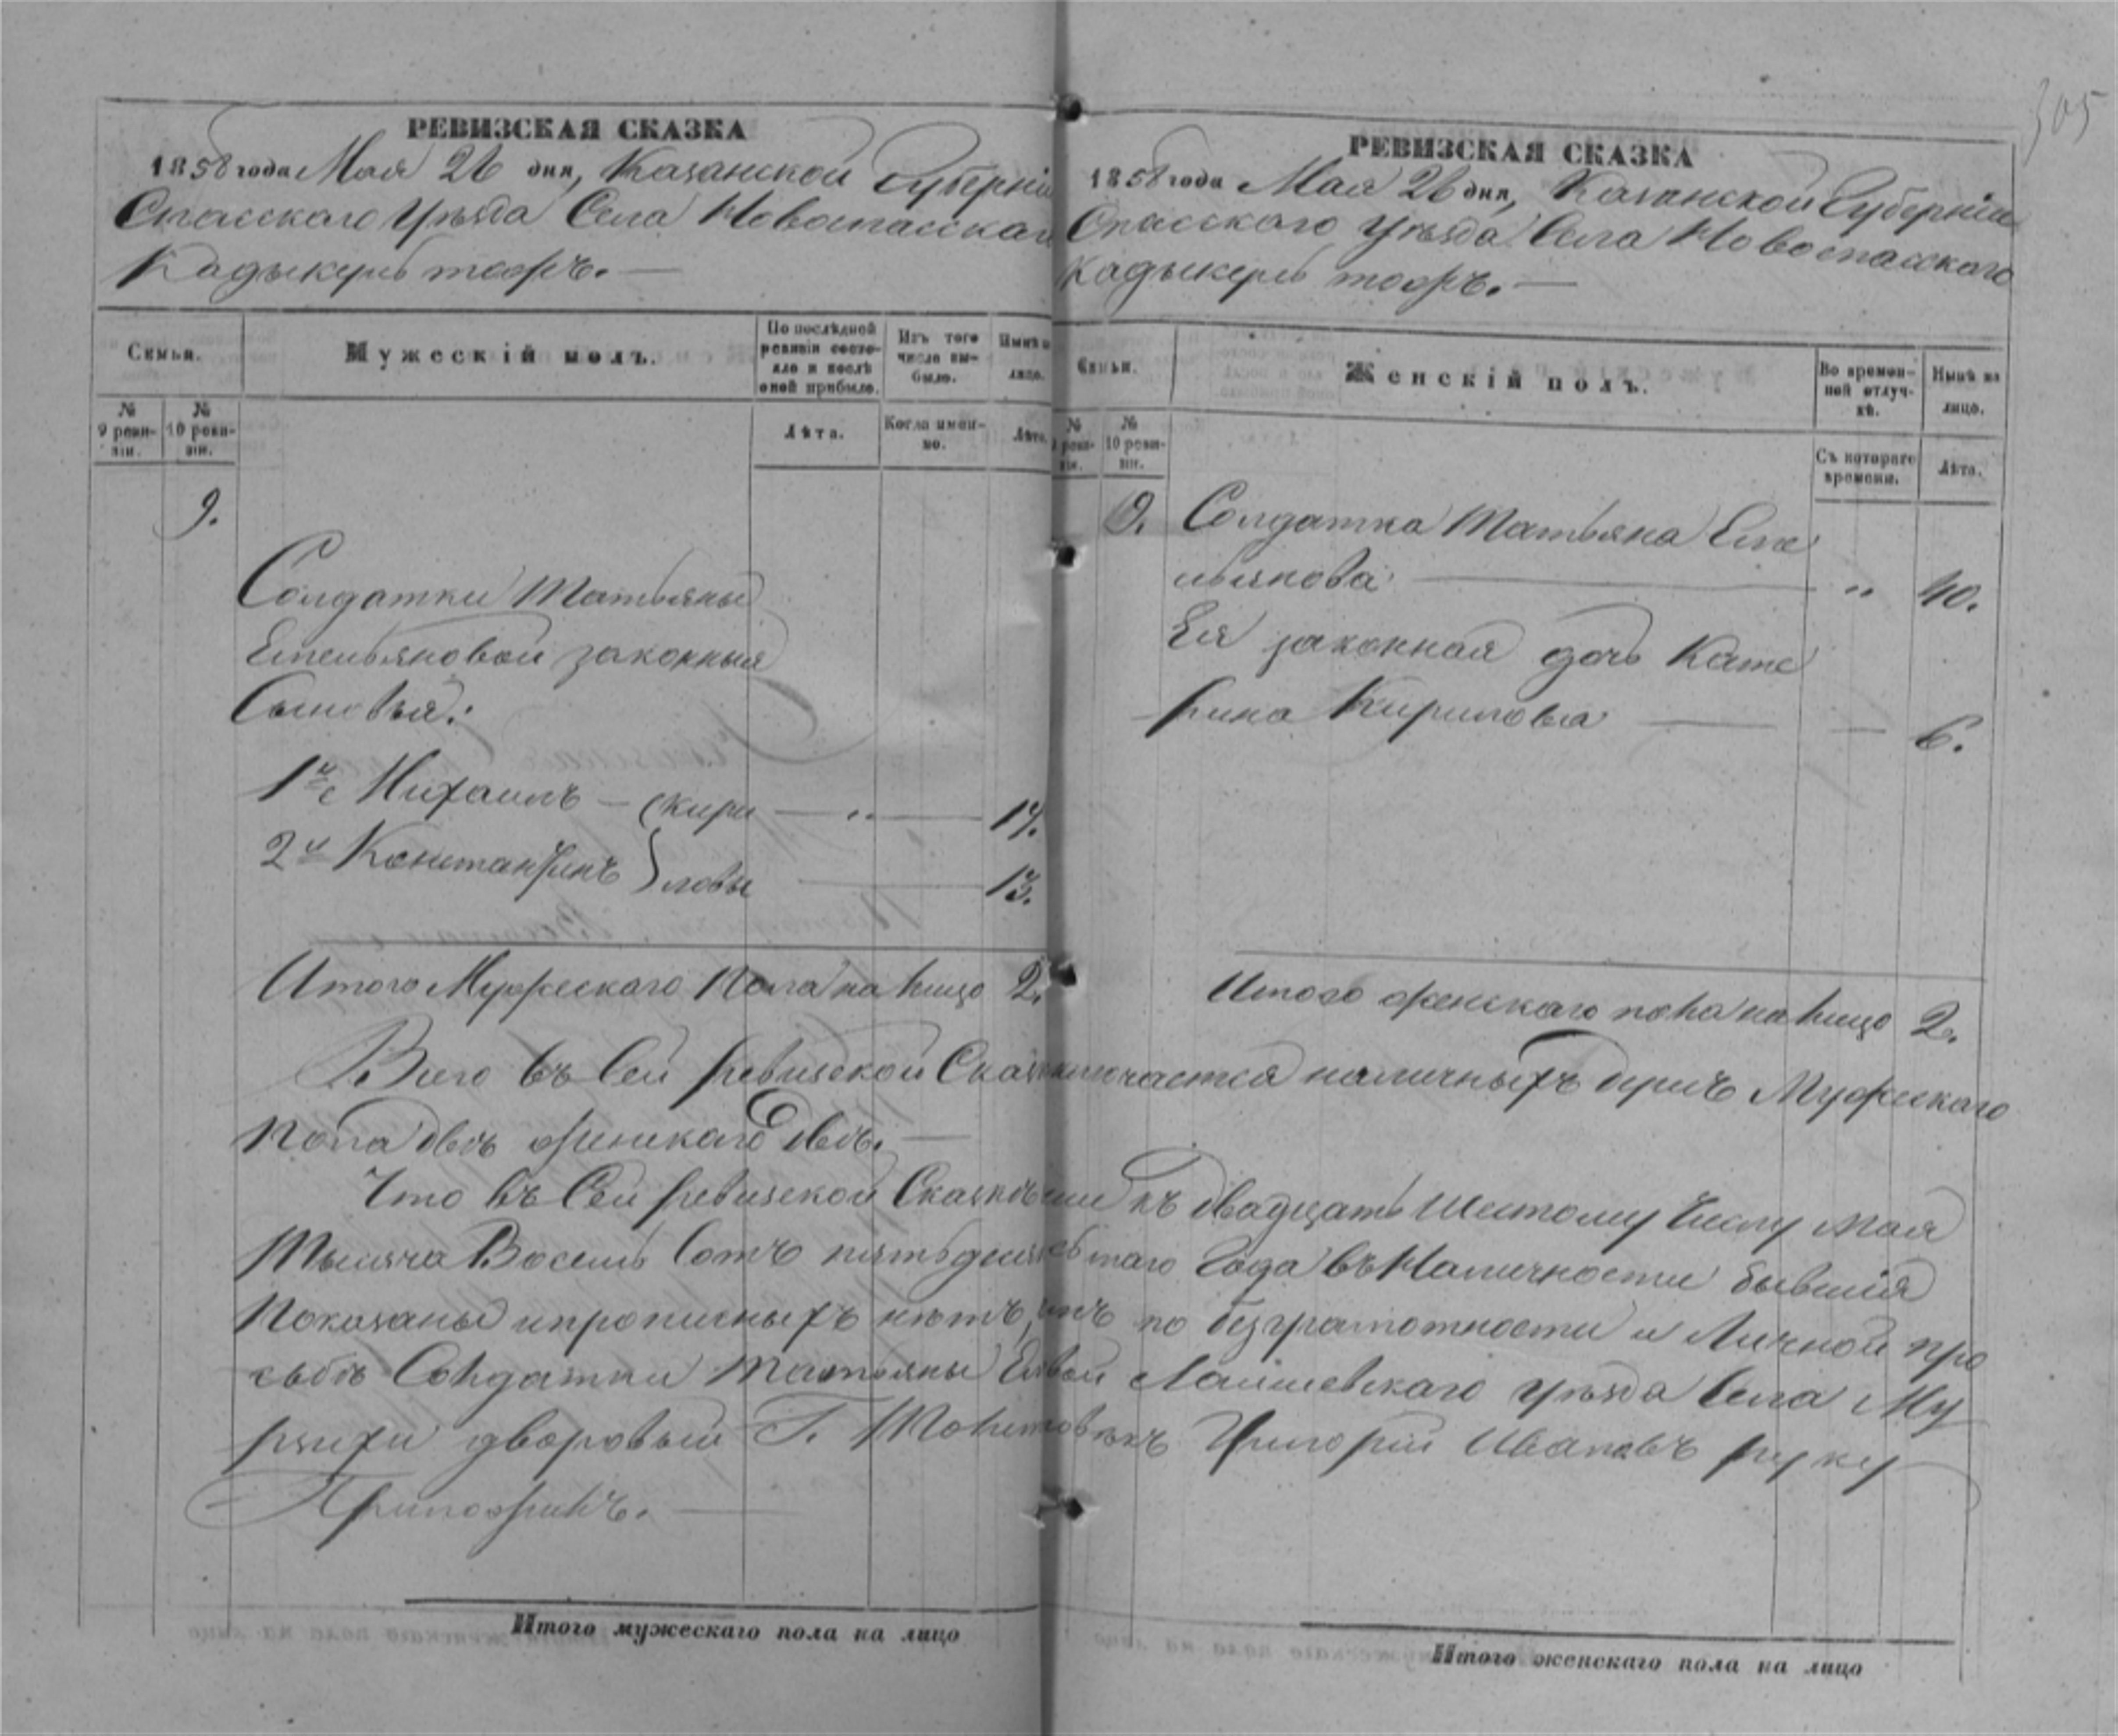 305
РЕВИЗСКАЯ СКАЗКА
1858 года Мая 26 дня, Казанской Губерніи
Спасскаго Уѣзда Села Новоспасскаго
Кадыкеръ тожъ.
Семьи.
Мужескій полъ.
По послѣдней ревизіи состояло и послѣ оной прибыло.
Изъ того числа выбыло.
Нынѣ на лицо.
№ 9 ревизіи.
№ 10 ревизіи.
Лѣта.
Когда именно.
Лѣта.
9.
Солдатки Татьяны
Емельяновой законныя
Сыновья:
1й Михаилъ – Кири 17.
2й Констан͠тинъ ловы 13.
Итого Мужескаго Пола на лицо 2.
РЕВИЗСКАЯ СКАЗКА
1858 года Мая 26 дня, Казанской Губерніи
Спасскаго Уѣзда Села Новоспасскаго
Кадыкеръ тожъ.
Семьи.
Женскій полъ.
Во временной отлучкѣ.
Нынѣ на лицо.
№ 9 ревизіи.
№ 10 ревизіи.
Съ котораго времени.
Лѣта.
9. Солдатка Татьяна Еме
льянова " 40.
Ея законная дочь Кате
рина Кирилова 6.
Итого женскаго пола на лицо 2.
Всего въ Сей ревизской наличныхъ душъ Мужескаго
Пола двѣ женскаго двѣ.
Что въ Сей ревизской къ двадцать Шестому Числу Мая
Тысяча Восемь Сотъ Года въ Наличности бывшія
Показаны и прописныхъ нѣтъ, по безграмотности и Личной про
сьбѣ Солдатки Татьяны Лаишевскаго Уѣзда Села Му
рзихи дворовый Г. Григорій Ивановъ руку
Приложилъ.
Итого мужескаго пола на лицо
Итого женскаго пола на лицо